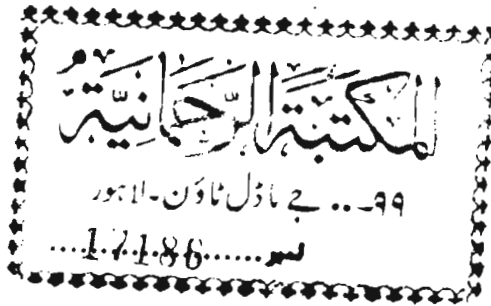 المكتبة الرحمانية
۹۹-.. جے ماڈل ٹاؤن-لاہور
نمبر......17186....